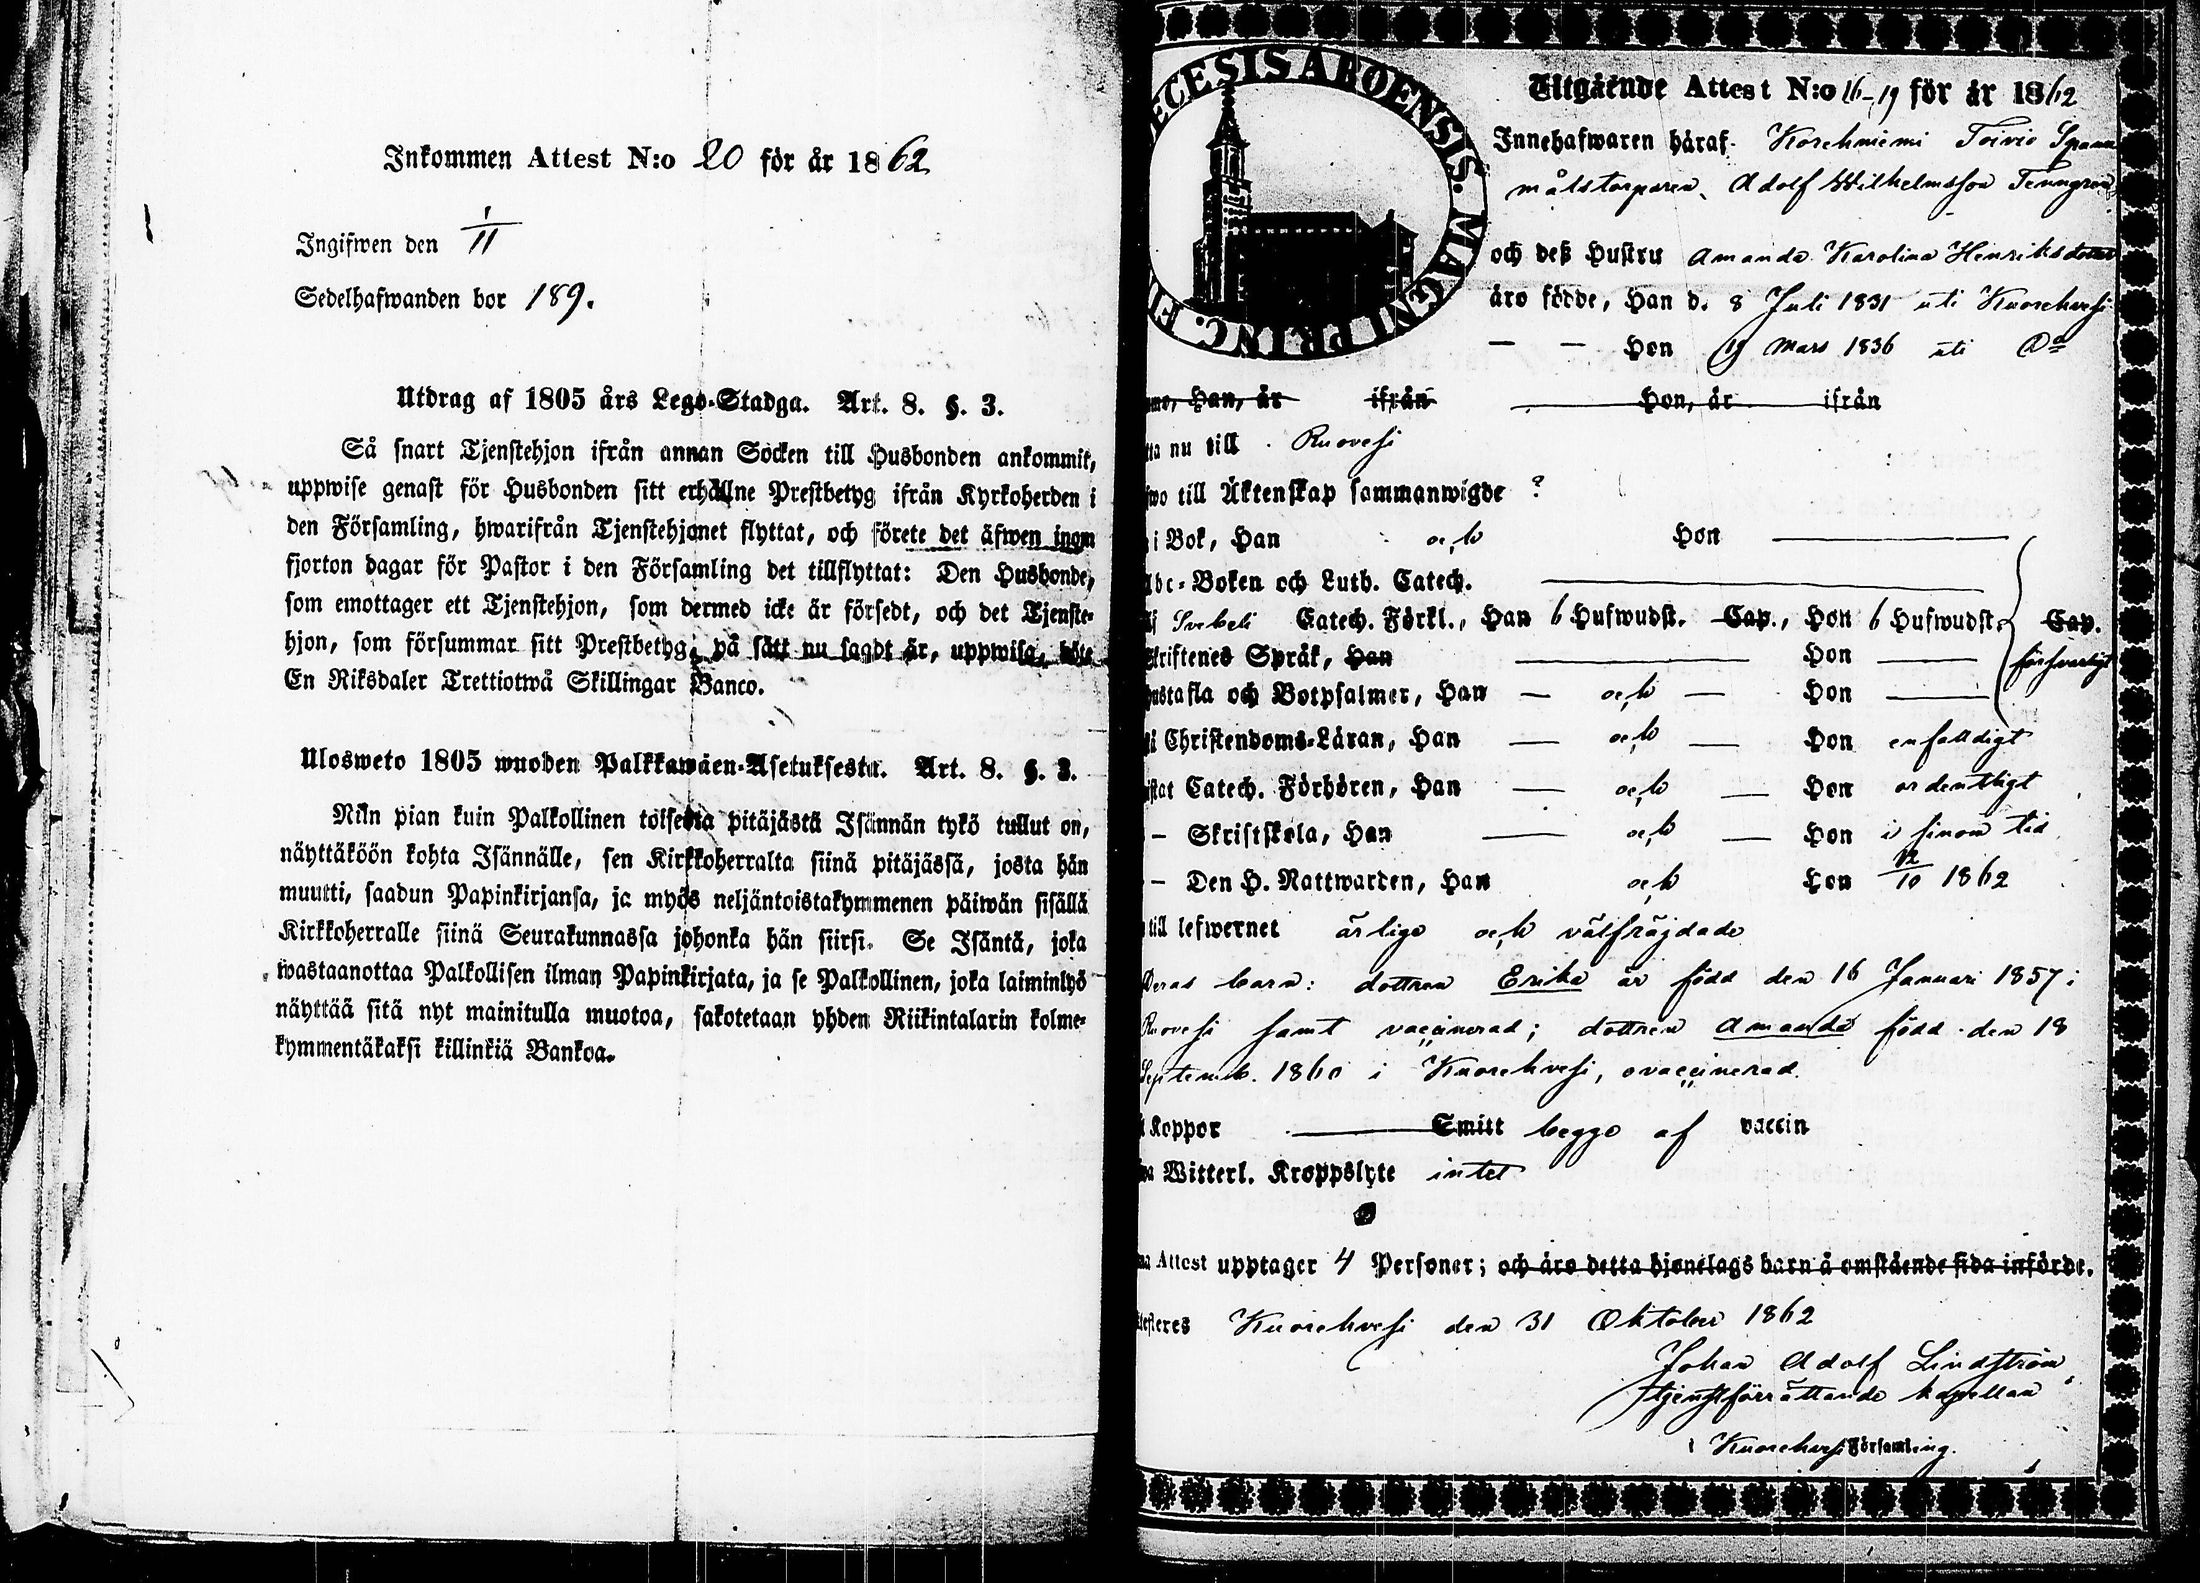 Inkommen Attest N:o 20 för år 1862
Ingifwen den 1/11
Sedelhafwanden bor 189.
Utdrag af 1805 års Lego-Stadga. Art. 8. §. 3.
Så snart Tjenstehjon ifrån annan Socken till Husbonden ankommit,
uppwise genast för Husbonden sitt erhållne Prestbetyg ifrån Kyrkoherden i
den Församling, hwarifrån Tjenstehjonet flyttat, och förete det äfwen inom
fjorton dagar för Pastor i den Församling det tillflyttat: Den Husbonde,
som emottager ett Tjenstehjon, som dermed icke är försedt, och det Tjenste-
hjon, som försummar sitt Prestbetyg, på sätt nu sagdt är, uppwisa, böte
En Riksdaler Trettiotwå Skillingar Banco.
Ulosweto 1805 wuoden Palkkawäen-Asetuksesta. Art. 8. §. 3.
Niin pian kuin Palkollinen toisesta pitäjästä Isännän tykö tullut on,
näyttäköön kohta Isännälle, sen Kirkkoherralta siinä pitäjässä, josta hän
muutti, saadun Papinkirjansa, ja myös neljäntoistakymmenen päiwän sisällä
Kirkkoherralle siinä Seurakunnassa johonka hän siirsi. Se Isäntä, joka
wastaanottaa Palkollisen ilman Papinkirjata, ja se Palkollinen, joka laiminlyö
näyttää sitä nyt mainitulla muotoa, sakotetaan yhden Riikintalarin kolme-
kymmentäkaksi killinkiä Bankoa.
ECESIS ABOENSIS. MAGNI PRINC. FI
Utgående Attest N:o 16-19 för år 1862
Innehafwaren häraf Korehniemi Toivio Spann
målstorparen, Adolf Wilhelmsson Tenngren
och deß Hustru Amanda Karolina Henriksdotter
äro födde, Han d. 8 Juli 1831 uti Kuorehvesi
— — Hon 19 Mars 1836 uti Do
Han, är ifrån Hon, är ifrån
nu till Ruovesi
till Äktenskap sammanwigde ?
i Bok, Han och Hon
Abc-Boken och Luth. Catech.
Svebeli Catech. Förkl., Han 6 Hufwudst. Cap., Hon 6 Hufwudst. Cap.
Skriftenes Språk, Han Hon försvarligt
Hustafla och Botpsalmer, Han — och — Hon
i Christendoms-Läran, Han — och — Hon enfaldigt
Catech. Förhören, Han — och — Hon ordentligt
— Skriftskola, Han — och — Hon i sinom tid
— Den H. Nattwarden, Han och Hon 12/10 1862
till lefwernet ärlige och välfräjdade
Deras barn: dottren Erika är född den 16 Januari 1857 i
Ruovesi samt vaccinerad; dottren Amanda född den 18
Septemb. 1860 i Kuorehvesi, ovaccinerad.
Koppor Smitt begge af vaccin
Witterl. Kroppslyte intet
Attest upptager 4 Personer; och äro detta hjonelags barn å omstående sida införde.
Kuorehvesi den 31 Oktober 1862
Johan Adolf Lindström
tjenstförrättande kapellan
i Kuorehvesi Församling.